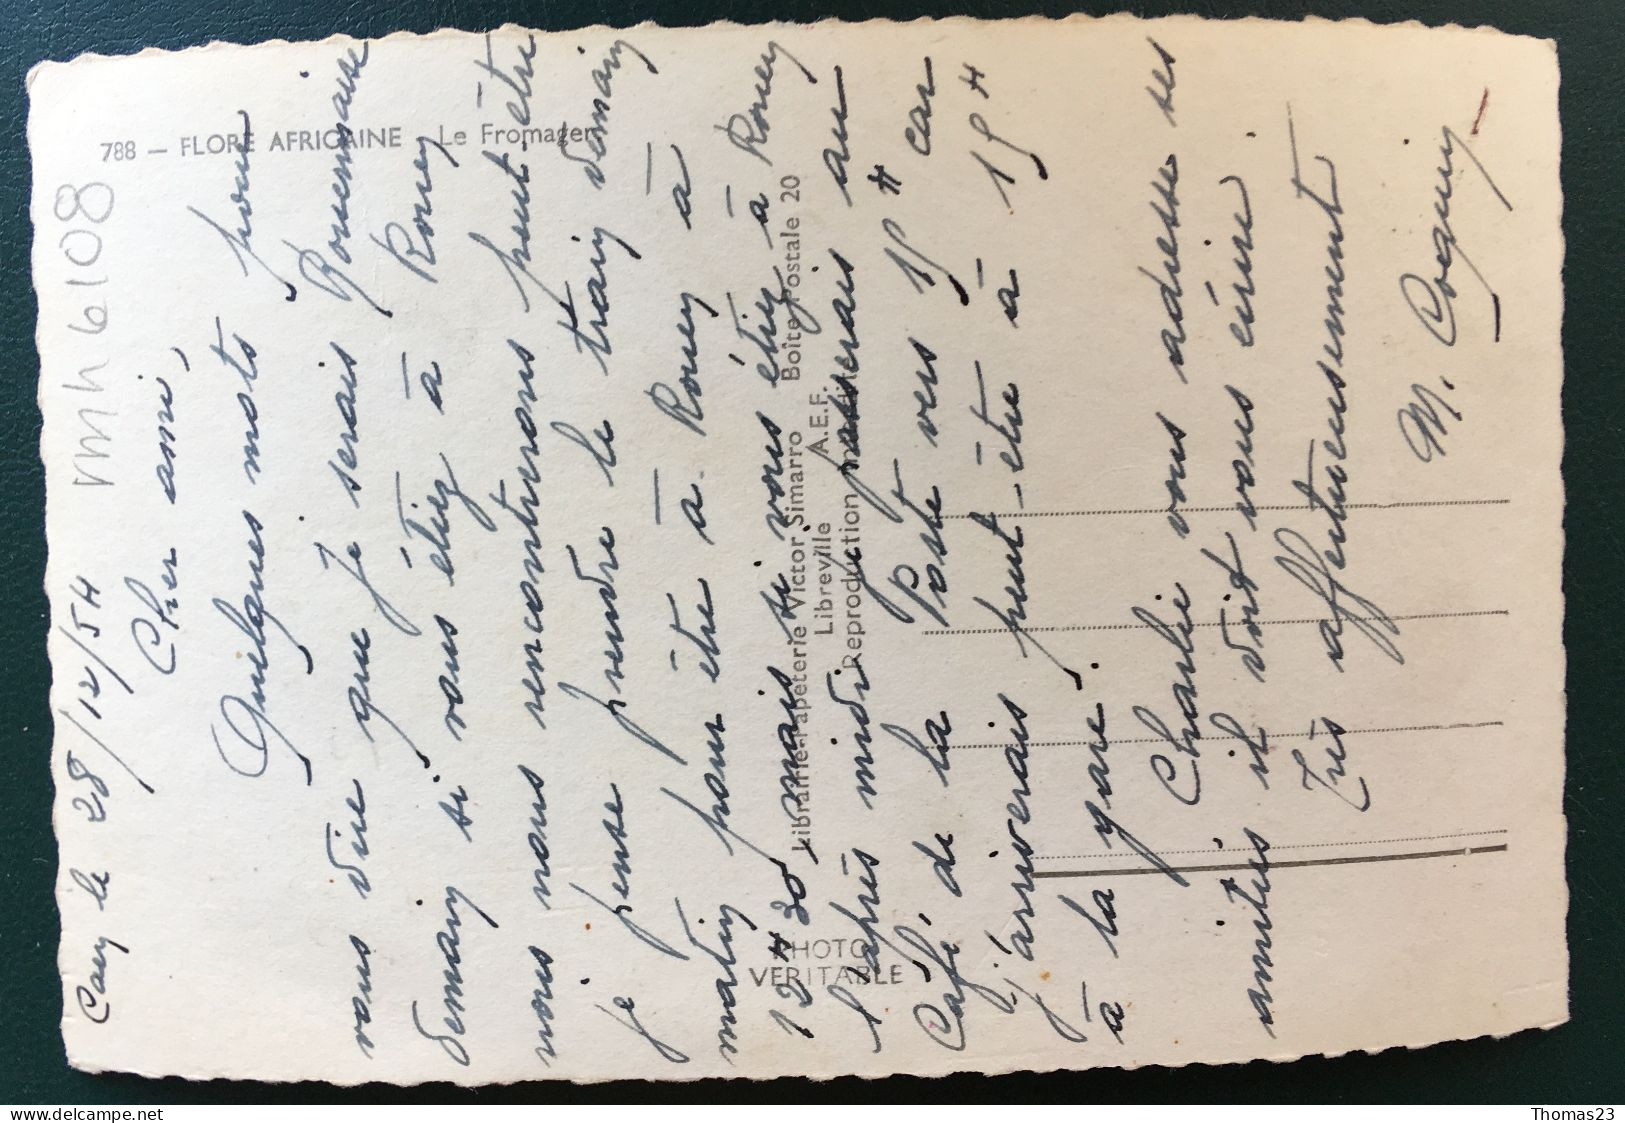 788 — FLORE AFRICAINE Le Fromager
vmh6108
Librairie-Papeterie Victor Simarro Boîte Postale 20
Libreville A.E.F.
Reproduction interdite
PHOTO
VERITABLE
Cany le 28/12/54
Cher ami,
Quelques mots pour
vous dire que je serais
demain si vous étiez à Rouen
nous nous rencontrerons peut être
je pense prendre le train demain
matin pour être à Rouen à
12H30, mais si vous étiez à Rouen
l'après midi, je passerais au
Café de la Poste vers 15H car
j'arriverais peut-être à 15H
à la gare.
Charlie vous adresse ses
amitiés il doit vous écrire
Très affectueusement
M.
Thomas23
delcampe.net